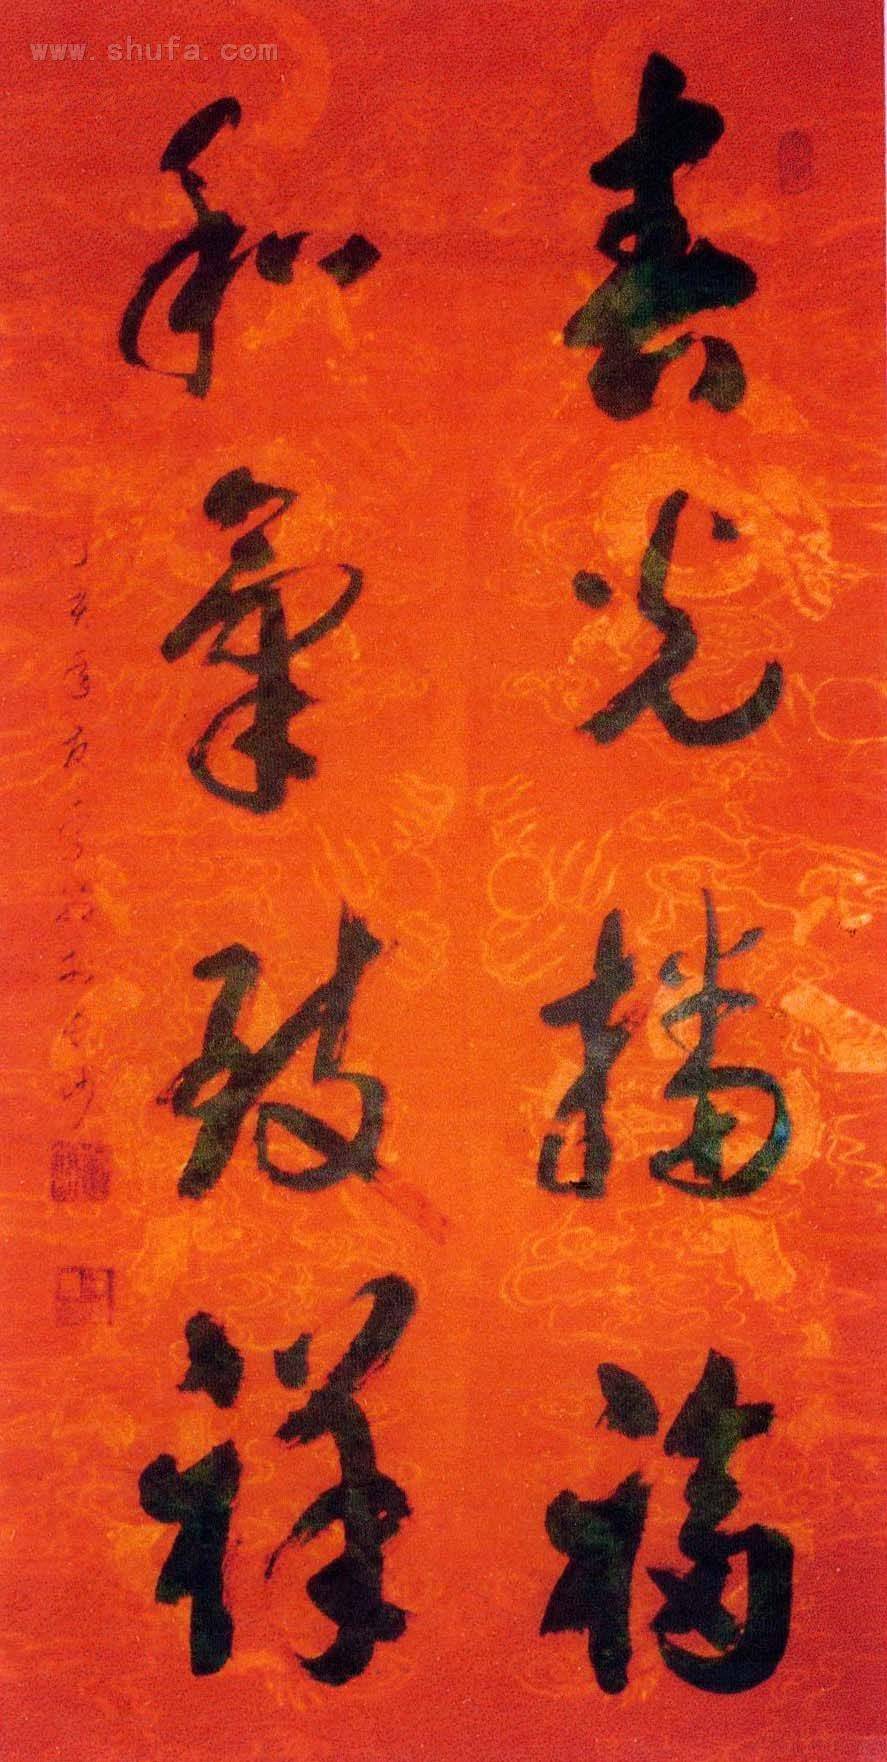 春光播福
和氣致祥
丁亥年
www.shufa.com